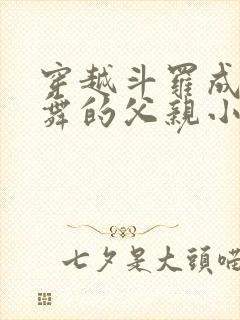 穿越斗羅成
舞的父親小
七夕是大頭喵